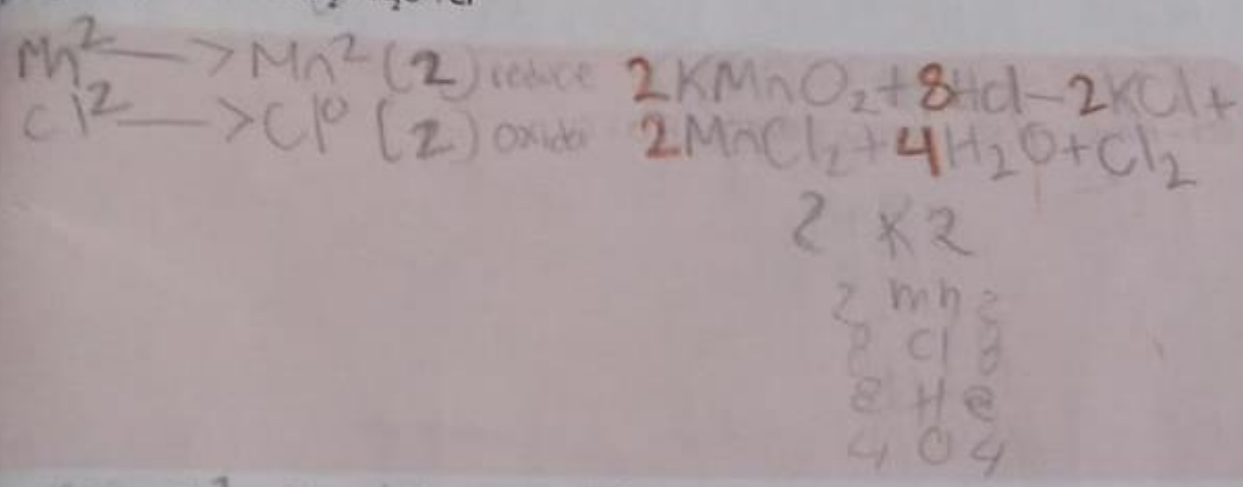 Mn² —> Mn² (2) reduce 2KMnO₂+8Hcl-2KCl+
Cl² —> Cl⁰ (2) oxida 2MnCl₂+4H₂O+Cl₂
2 K 2
2 mn 2
8 Cl 8
8 H 8
4 O 4